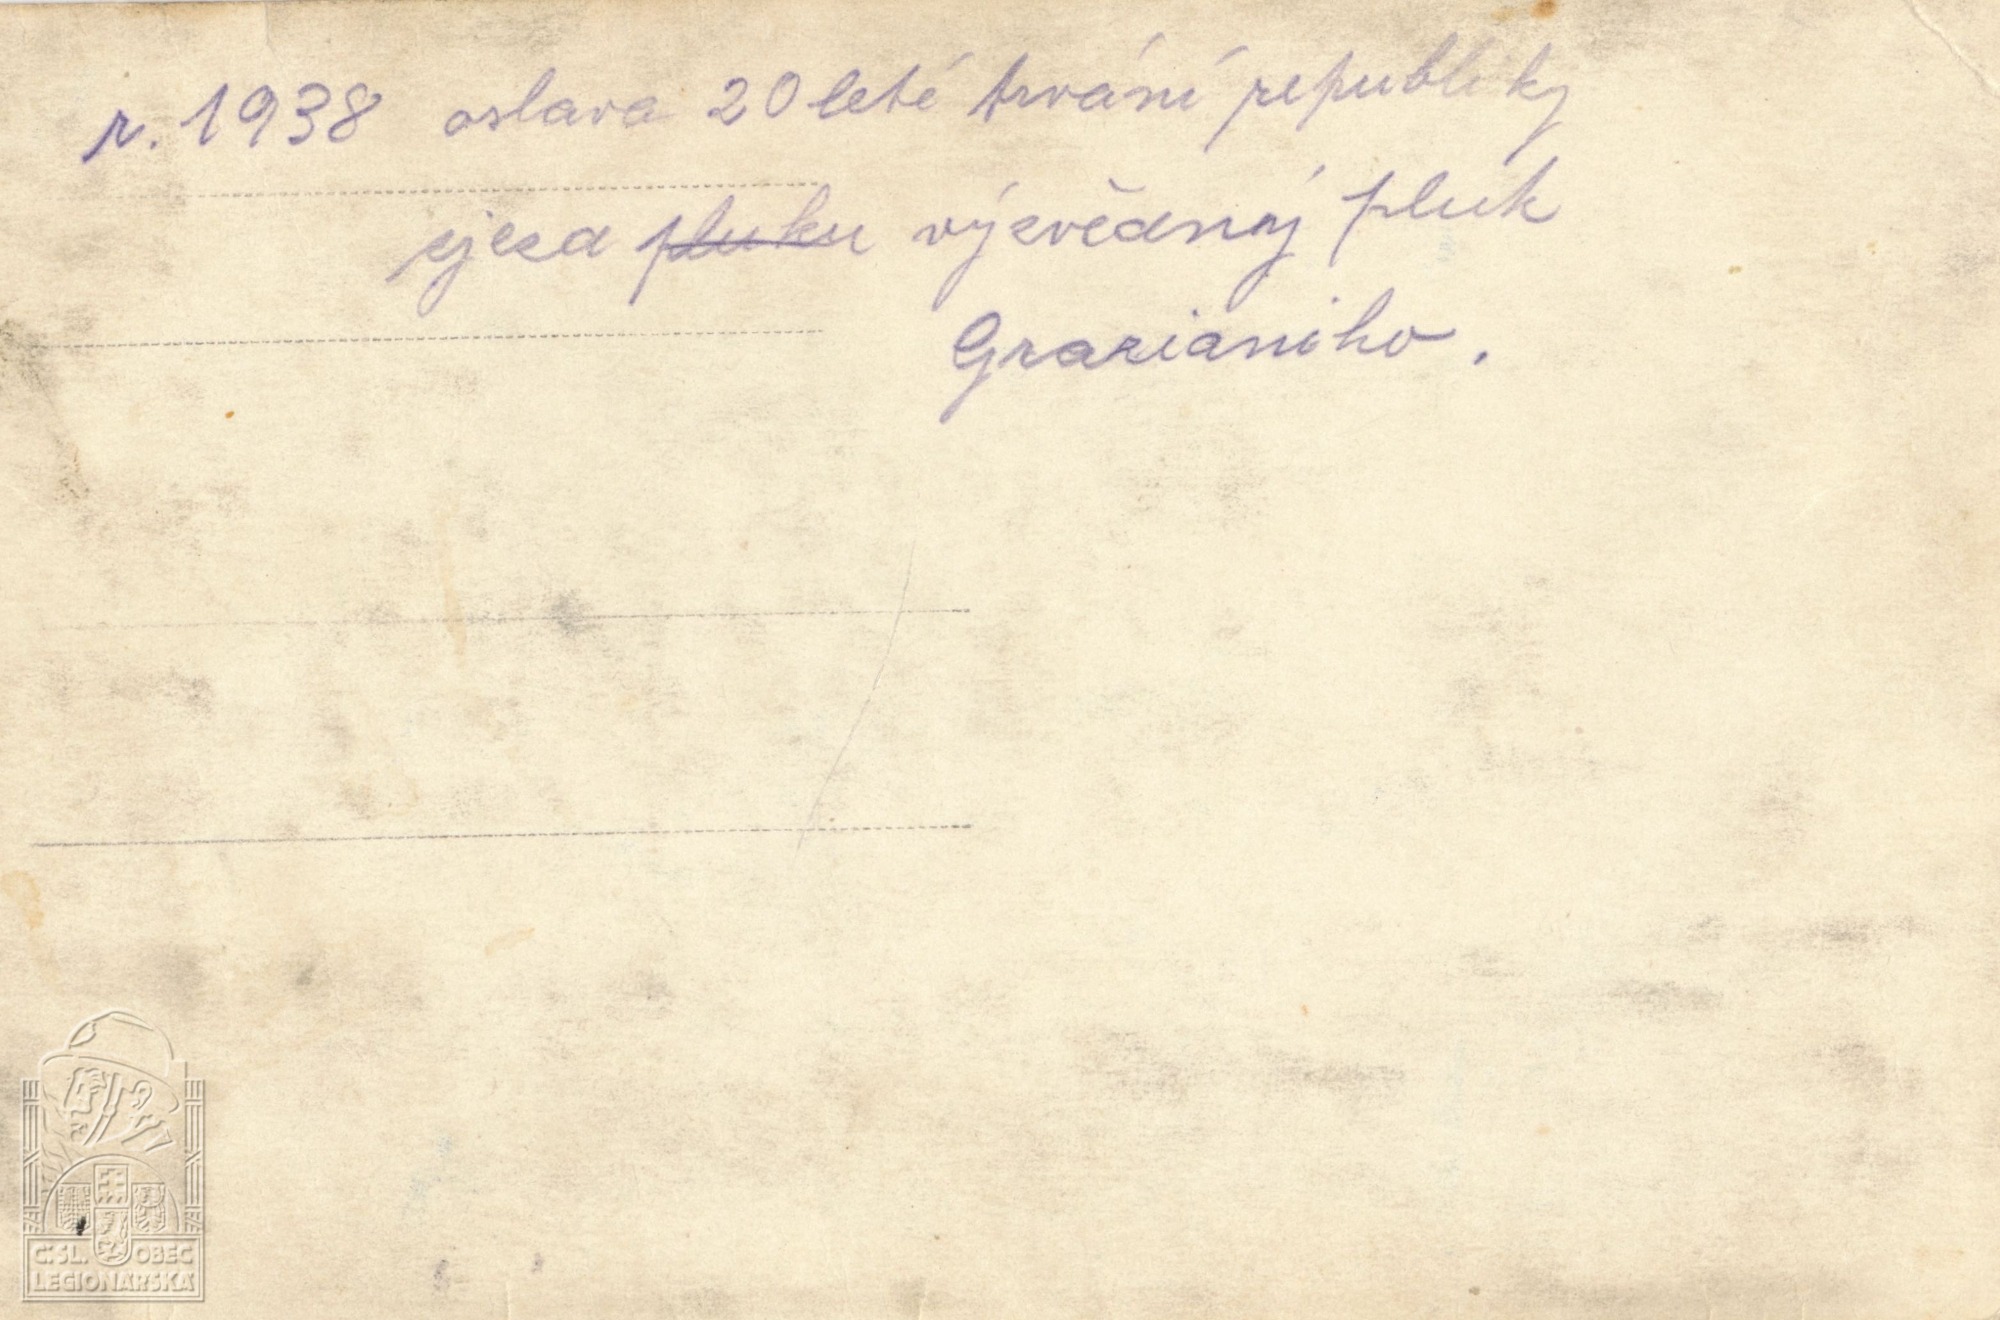 r. 1938 oslava 20 leté trvání republiky
sjezd pluku výzvědný pluk
Grazianiho.
Č. SL. OBEC
LEGIONÁŘSKÁ